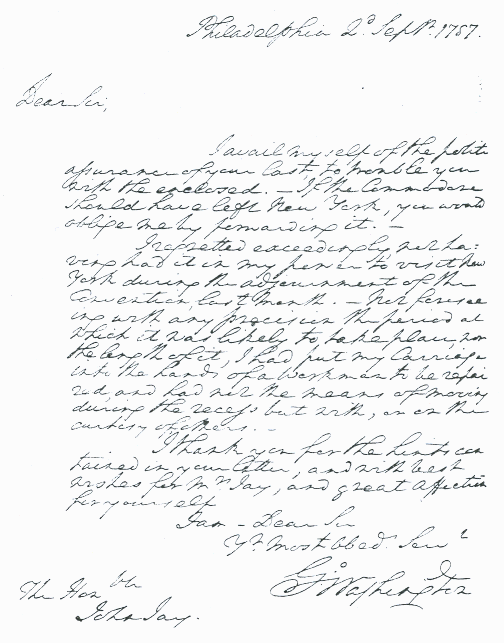 Philadelphia 2d. Septr. 1787.
Dear Sir,
I avail myself of the polite
assurance of your last, to trouble you
with the enclosed. — If the Commodore
should have left New York, you would
oblige me by forwarding it. —
I regretted exceedingly not ha-
ving had it in my power to visit New
York during the adjournment of the
Convention, last Month. — Not foresee
ing with any precision the period at
which it was likely to take place, nor
the length of it, I had put my Carriage
into the hands of a Workman to be repai
red, and had not the means of moving
during the recess but with, or on the
curtisy of others. —
I thank you for the hints con
tained in your letter, and with best
wishes for Mrs. Jay, and great affection
for yourself
I am — Dear Sir
Yr. most Obedt. Servt
Go. Washington
The Honble
John Jay.